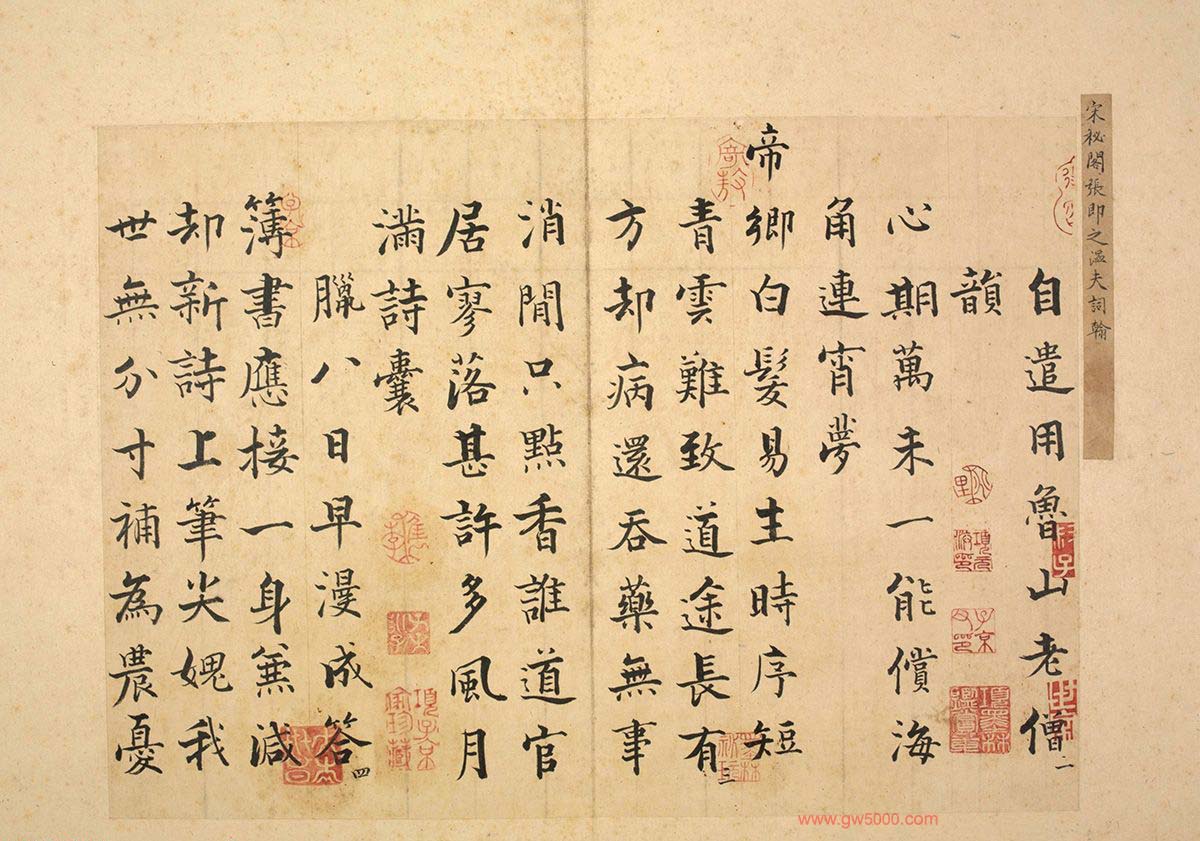 宋秘閣張即之溫夫詞翰
自遣用魯山老僧
韻
心期萬未一能償海
角連宵夢
帝
鄉白髮易生時序短
青雲難致道途長有
方却病還吞藥無事
消閒只點香誰道官
居寥落甚許多風月
滿詩囊
臘八日早漫成答
簿書應接一身兼減
却新詩上筆尖媿我
世無分寸補為農憂
二
三
四
項子京
家珍藏
子京
www.gw5000.com